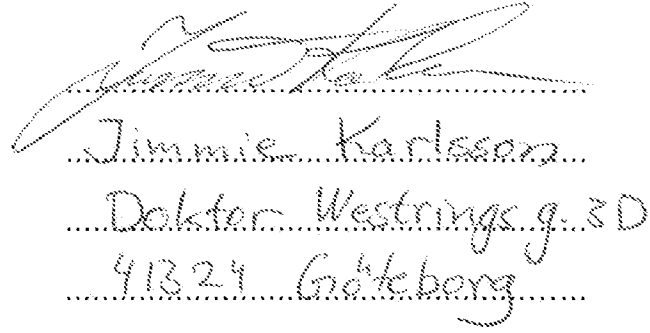 Jimmie Karlsson
Jimmie Karlsson
Doktor Westrings g. 3D
41324 Göteborg